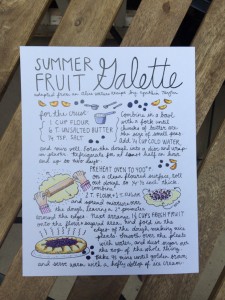 SUMMER
FRUIT Galette
adapted from an Alice Waters recipe by
for the crust
1 CUP FLOUR
6 T. UNSALTED BUTTER
1/4 TSP. SALT
Combine in a bowl
with a fork until
chunks of butter are
the size of small peas.
add 1/4 CUP COLD WATER,
and mix well. Form the dough into a disc and wrap
in plastic. Refrigerate for at least half an hour
and up to two days.
PREHEAT OVEN TO
on a clean floured surface, roll
out dough to 1/4 inch thick.
combine
2 T. FLOUR + 1 T. SUGAR
and spread mixture over
the dough, leaving a 2" perimeter
around the edges. Next arrange 1 1/2 CUPS FRESH FRUIT
onto the floured sugared area. and fold in the
edges of the dough, making nice
pleats. Brush over the pleats
with water, and dust sugar on
the top of the whole thing.
Bake 45 mins until golden brown,
and serve warm with a hefty dollop of ice cream.